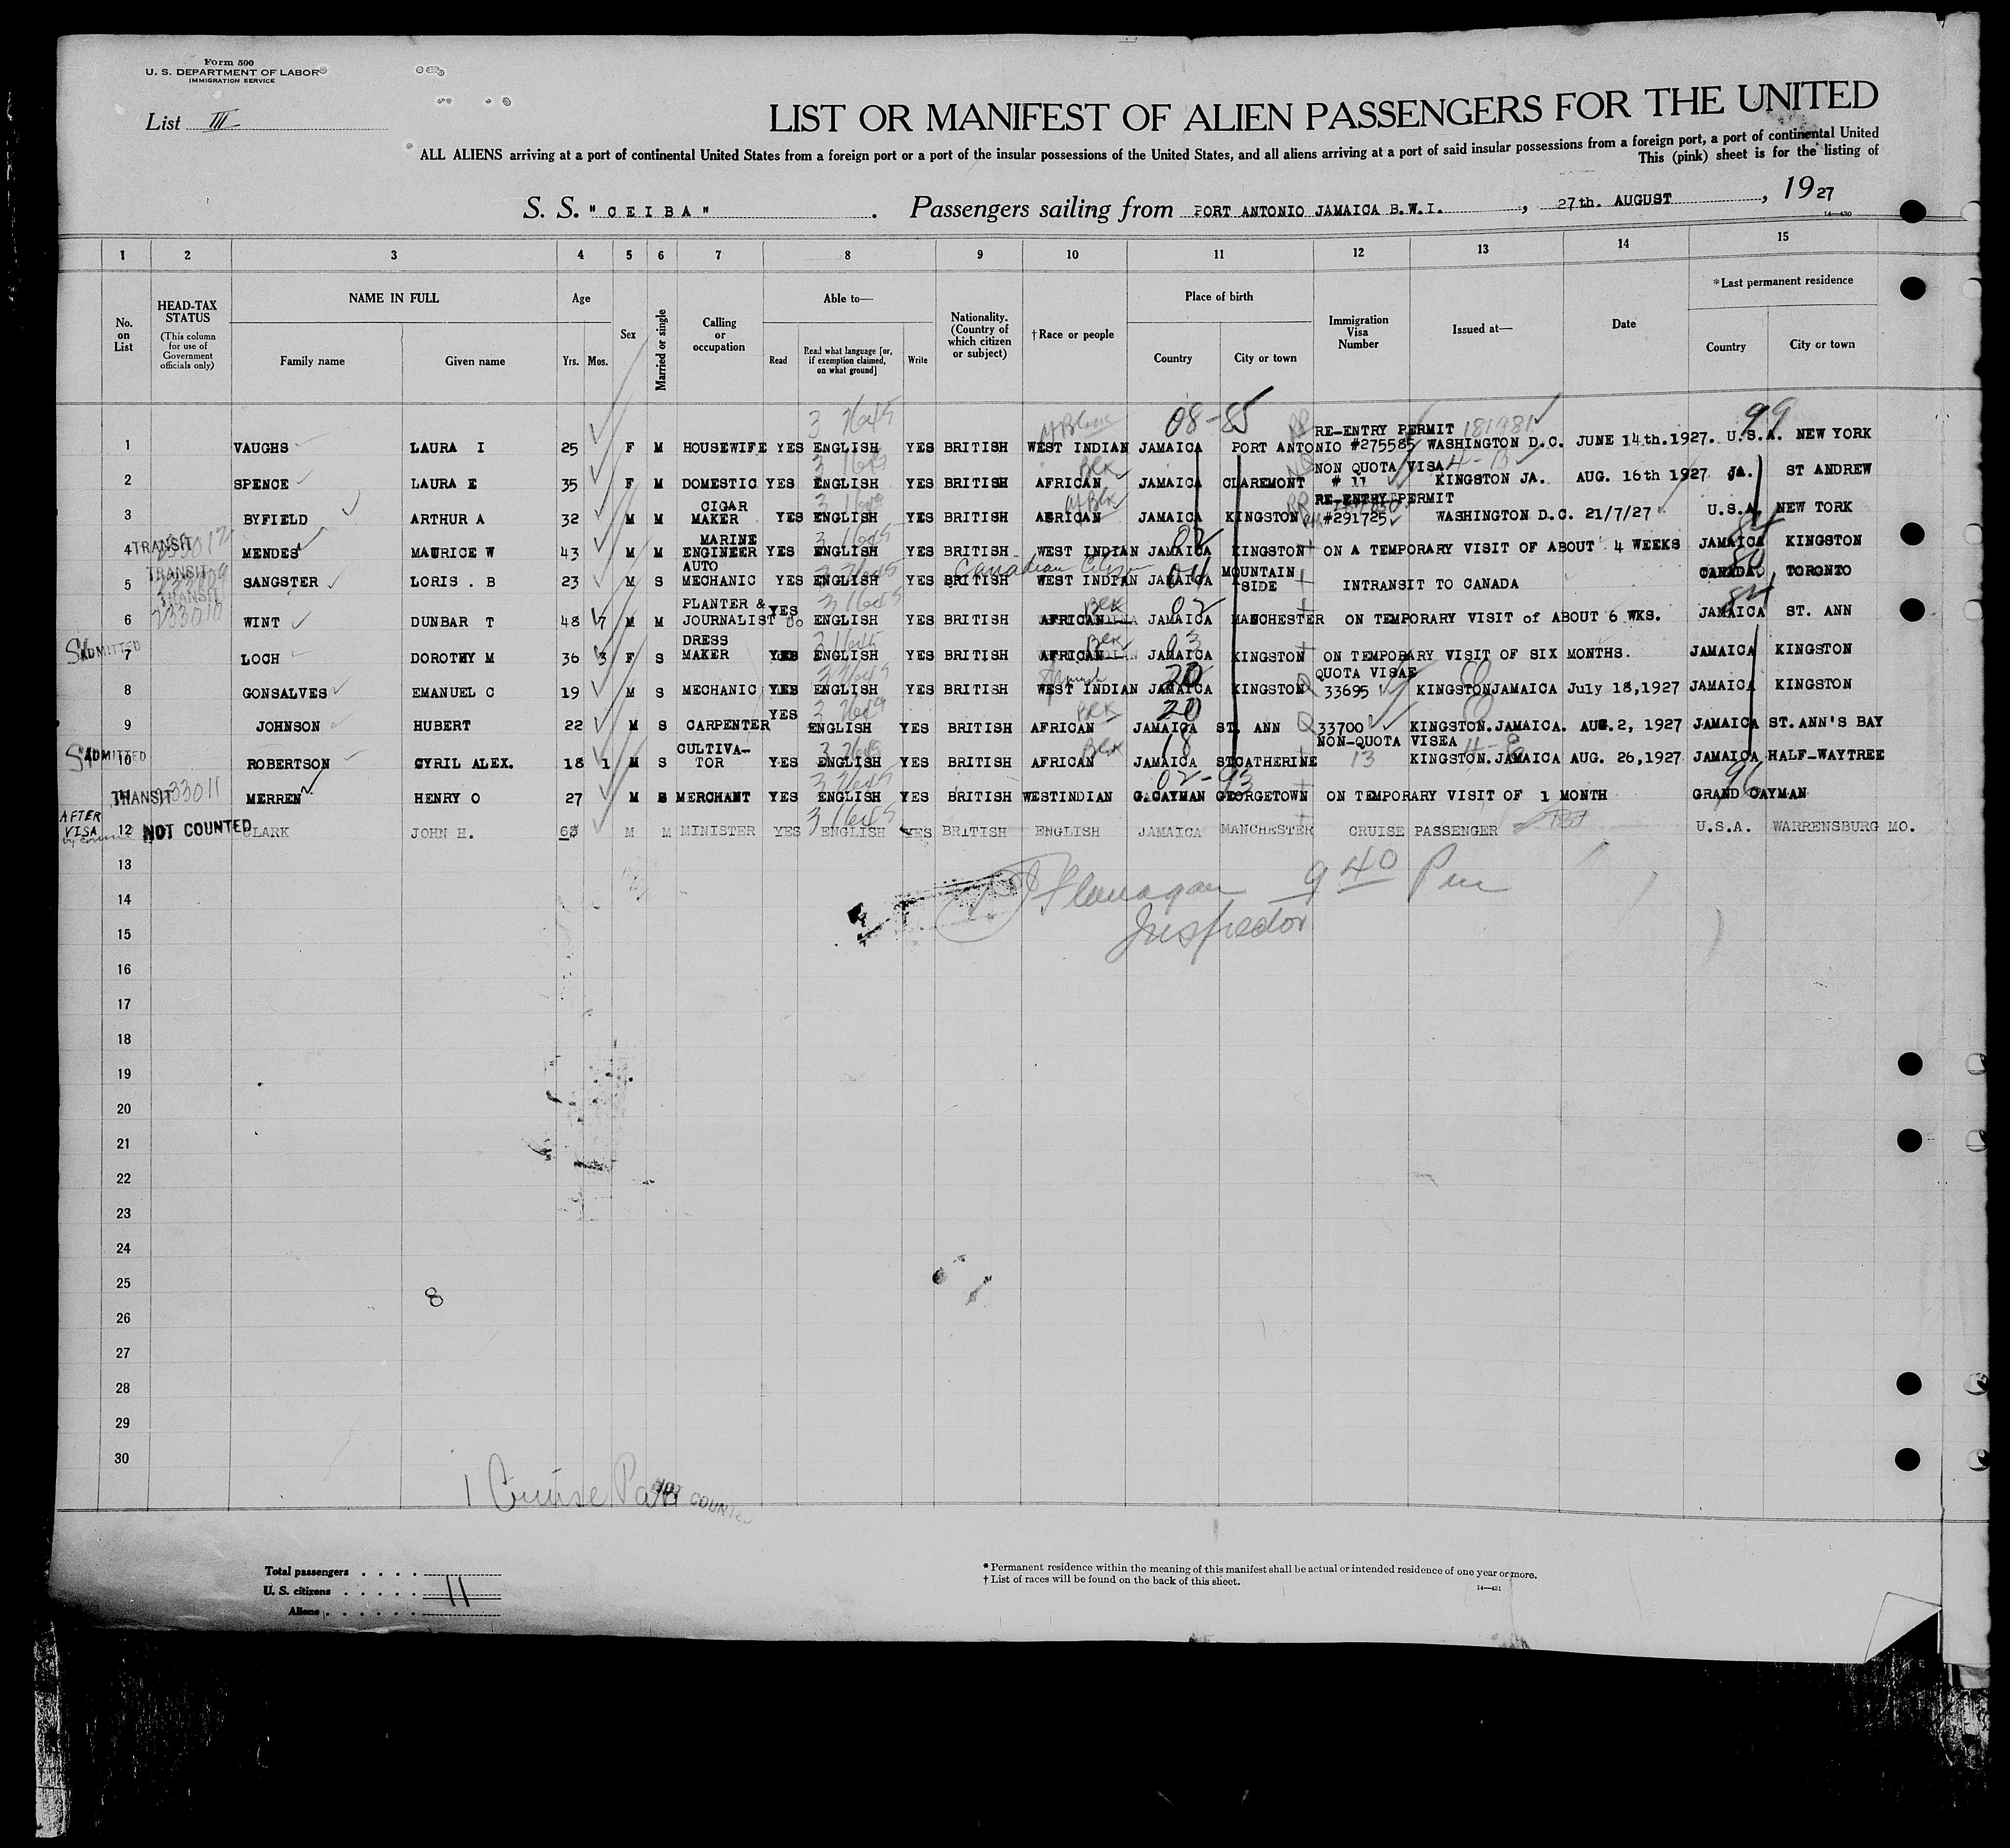 Form 500
U. S. DEPARTMENT OF LABOR
IMMIGRATION SERVICE
List III
LIST OR MANIFEST OF ALIEN PASSENGERS FOR THE UNITED
ALL ALIENS arriving at a port of continental United States from a foreign port or a port of the insular possessions of the United States, and all aliens arriving at a port of said insular possessions from a foreign port, a port of continental United
This (pink) sheet is for the listing of
S. S. "CEIBA". Passengers sailing from PORT ANTONIO JAMAICA B.W.I., 27th. AUGUST, 1927
14—430
1 2 3 4 5 6 7 8 9 10 11 12 13 14 15
No. on List
HEAD-TAX STATUS (This column for use of Government officials only)
NAME IN FULL Family name Given name
Age Yrs. Mos.
Sex
Married or single
Calling or occupation
Able to— Read Read what language [or, if exemption claimed, on what ground] Write
Nationality. (Country of which citizen or subject)
† Race or people
Place of birth Country City or town
Immigration Visa Number
Issued at—
Date
*Last permanent residence Country City or town
08-85 181981 99
RE-ENTRY PERMIT
1 VAUGHS LAURA I 25 F M HOUSEWIFE YES ENGLISH YES BRITISH WEST INDIAN JAMAICA PORT ANTONIO #275585 WASHINGTON D.C. JUNE 14th.1927. U.S.A. NEW YORK
Blk NON QUOTA VISA
2 SPENCE LAURA E 35 F M DOMESTIC YES ENGLISH YES BRITISH AFRICAN JAMAICA CLAREMONT # 11 KINGSTON JA. AUG. 16th 1927 JA. ST ANDREW
RE-ENTRY PERMIT
3 BYFIELD ARTHUR A 32 M M CIGAR MAKER YES ENGLISH YES BRITISH AFRICAN JAMAICA KINGSTON #291725 WASHINGTON D.C. 21/7/27 U.S.A. NEW YORK
4 TRANSIT 233012 MENDES MAURICE W 43 M M MARINE ENGINEER YES ENGLISH YES BRITISH WEST INDIAN JAMAICA KINGSTON ON A TEMPORARY VISIT OF ABOUT 4 WEEKS JAMAICA KINGSTON
Canadian Citizen
5 TRANSIT 233009 SANGSTER LORIS . B 23 M S AUTO MECHANIC YES ENGLISH YES BRITISH WEST INDIAN JAMAICA MOUNTAIN SIDE INTRANSIT TO CANADA CANADA. TORONTO
6 TRANSIT 233010 WINT DUNBAR T 48 7 M M PLANTER & JOURNALIST YES DO ENGLISH YES BRITISH AFRICAN JAMAICA MANCHESTER ON TEMPORARY VISIT of ABOUT 6 WKS. JAMAICA ST. ANN
7 ADMITTED LOCH DOROTHY M 36 3 F S DRESS MAKER YES ENGLISH YES BRITISH AFRICAN JAMAICA KINGSTON ON TEMPORARY VISIT OF SIX MONTHS. JAMAICA KINGSTON
QUOTA VISAE
8 GONSALVES EMANUEL C 19 M S MECHANIC YES ENGLISH YES BRITISH WEST INDIAN JAMAICA KINGSTON 33695 KINGSTON JAMAICA July 18,1927 JAMAICA KINGSTON
9 JOHNSON HUBERT 22 M S CARPENTER YES ENGLISH YES BRITISH AFRICAN JAMAICA ST. ANN 33700 KINGSTON.JAMAICA. AUG.2, 1927 JAMAICA ST.ANN'S BAY
NON-QUOTA VISEA
10 ADMITTED ROBERTSON CYRIL ALEX. 18 1 M S CULTIVA-TOR YES ENGLISH YES BRITISH AFRICAN JAMAICA ST CATHERINE 13 KINGSTON.JAMAICA AUG. 26,1927 JAMAICA HALF-WAYTREE
TRANSIT 233011 MERREN HENRY O 27 M S MERCHANT YES ENGLISH YES BRITISH WESTINDIAN G.CAYMAN GEORGETOWN ON TEMPORARY VISIT OF 1 MONTH GRAND CAYMAN
AFTER VISA
12 NOT COUNTED CLARK JOHN H. M M MINISTER YES ENGLISH YES BRITISH ENGLISH JAMAICA MANCHESTER CRUISE PASSENGER U.S.A. WARRENSBURG MO.
13
Flanagan 9 40 Pm
14
Inspector
15
16
17
18
19
20
21
22
23
24
25
8
26
27
28
29
30
1 Cruise Pass NOT COUNTED
Total passengers
U. S. citizens 11
Aliens
* Permanent residence within the meaning of this manifest shall be actual or intended residence of one year or more.
† List of races will be found on the back of this sheet.
14—431